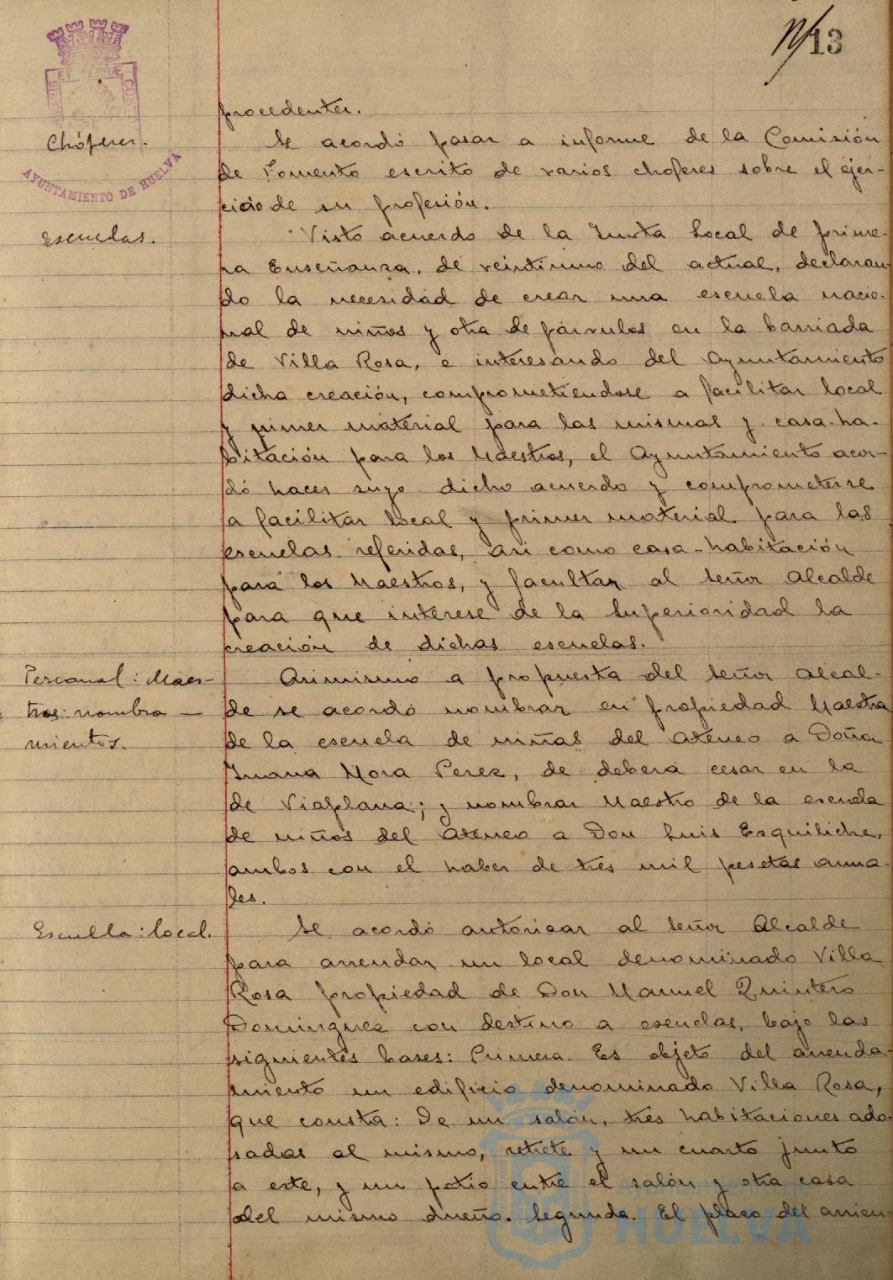 13
procedentes.
Chóferes.
Se acordó pasar a informe de la Comisión
de Fomento escrito de varios choferes sobre el ejer-
cicio de su profesión.
AYUNTAMIENTO DE HUELVA
Escuelas.
Visto acuerdo de la Junta Local de prime-
ra Enseñanza, de veintiuno del actual, declaran-
do la necesidad de crear una escuela nacio-
nal de niños y otra de párvulos en la barriada
de Villa Rosa, e interesando del Ayuntamiento
dicha creación, comprometiéndose a facilitar local
y primer material para las mismas y casa-ha-
bitación para los Maestros, el Ayuntamiento acor-
dó hacer suyo dicho acuerdo y comprometerse
a facilitar local y primer material para las
escuelas referidas, asi como casa-habitación
para los Maestros, y facultar al señor Alcalde
para que interese de la Superioridad la
creación de dichas escuelas.
Personal: Maes-
tros: nombra-
mientos.
Asimismo a propuesta del señor Alcal-
de se acordó nombrar en propiedad Maestra
de la escuela de niñas del Ateneo a Doña
Juana Mora Perez, de deberá cesar en la
de Viaplana; y nombrar Maestro de la escuela
de niños del Ateneo a Don Luis Esquiliche,
ambos con el haber de tres mil pesetas anua-
les.
Escuela: local.
Se acordó autorizar al señor Alcalde
para arrendar un local denominado Villa
Rosa propiedad de Don Manuel Quintero
Dominguez con destino a escuelas, bajo las
siguientes bases: Primera. Es objeto del arrenda-
miento un edificio denominado Villa Rosa,
que consta: De un salón, tres habitaciones ado-
sadas al mismo, retrete y un cuarto junto
a este, y un patio entre el salón y otra casa
del mismo dueño. Segunda. El plazo del arrien-
Ayuntamiento de
HUELVA